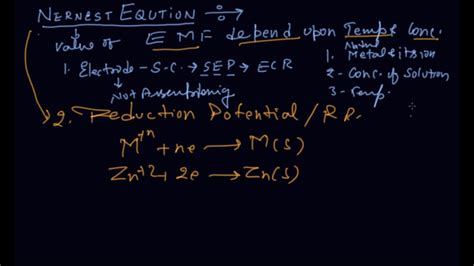 NERNEST EQUTION ÷
value of E M F depend upon Temp & Conc.
1. Electrode - S.C. → SEP → ECR
Not Assentioning
1. Nature Metal & its ion
2 - Conc. of Solution
3 - Temp
2. Reduction Potential / R P.
M⁺ⁿ + ne → M(s)
Zn⁺² + 2e → Zn(s)